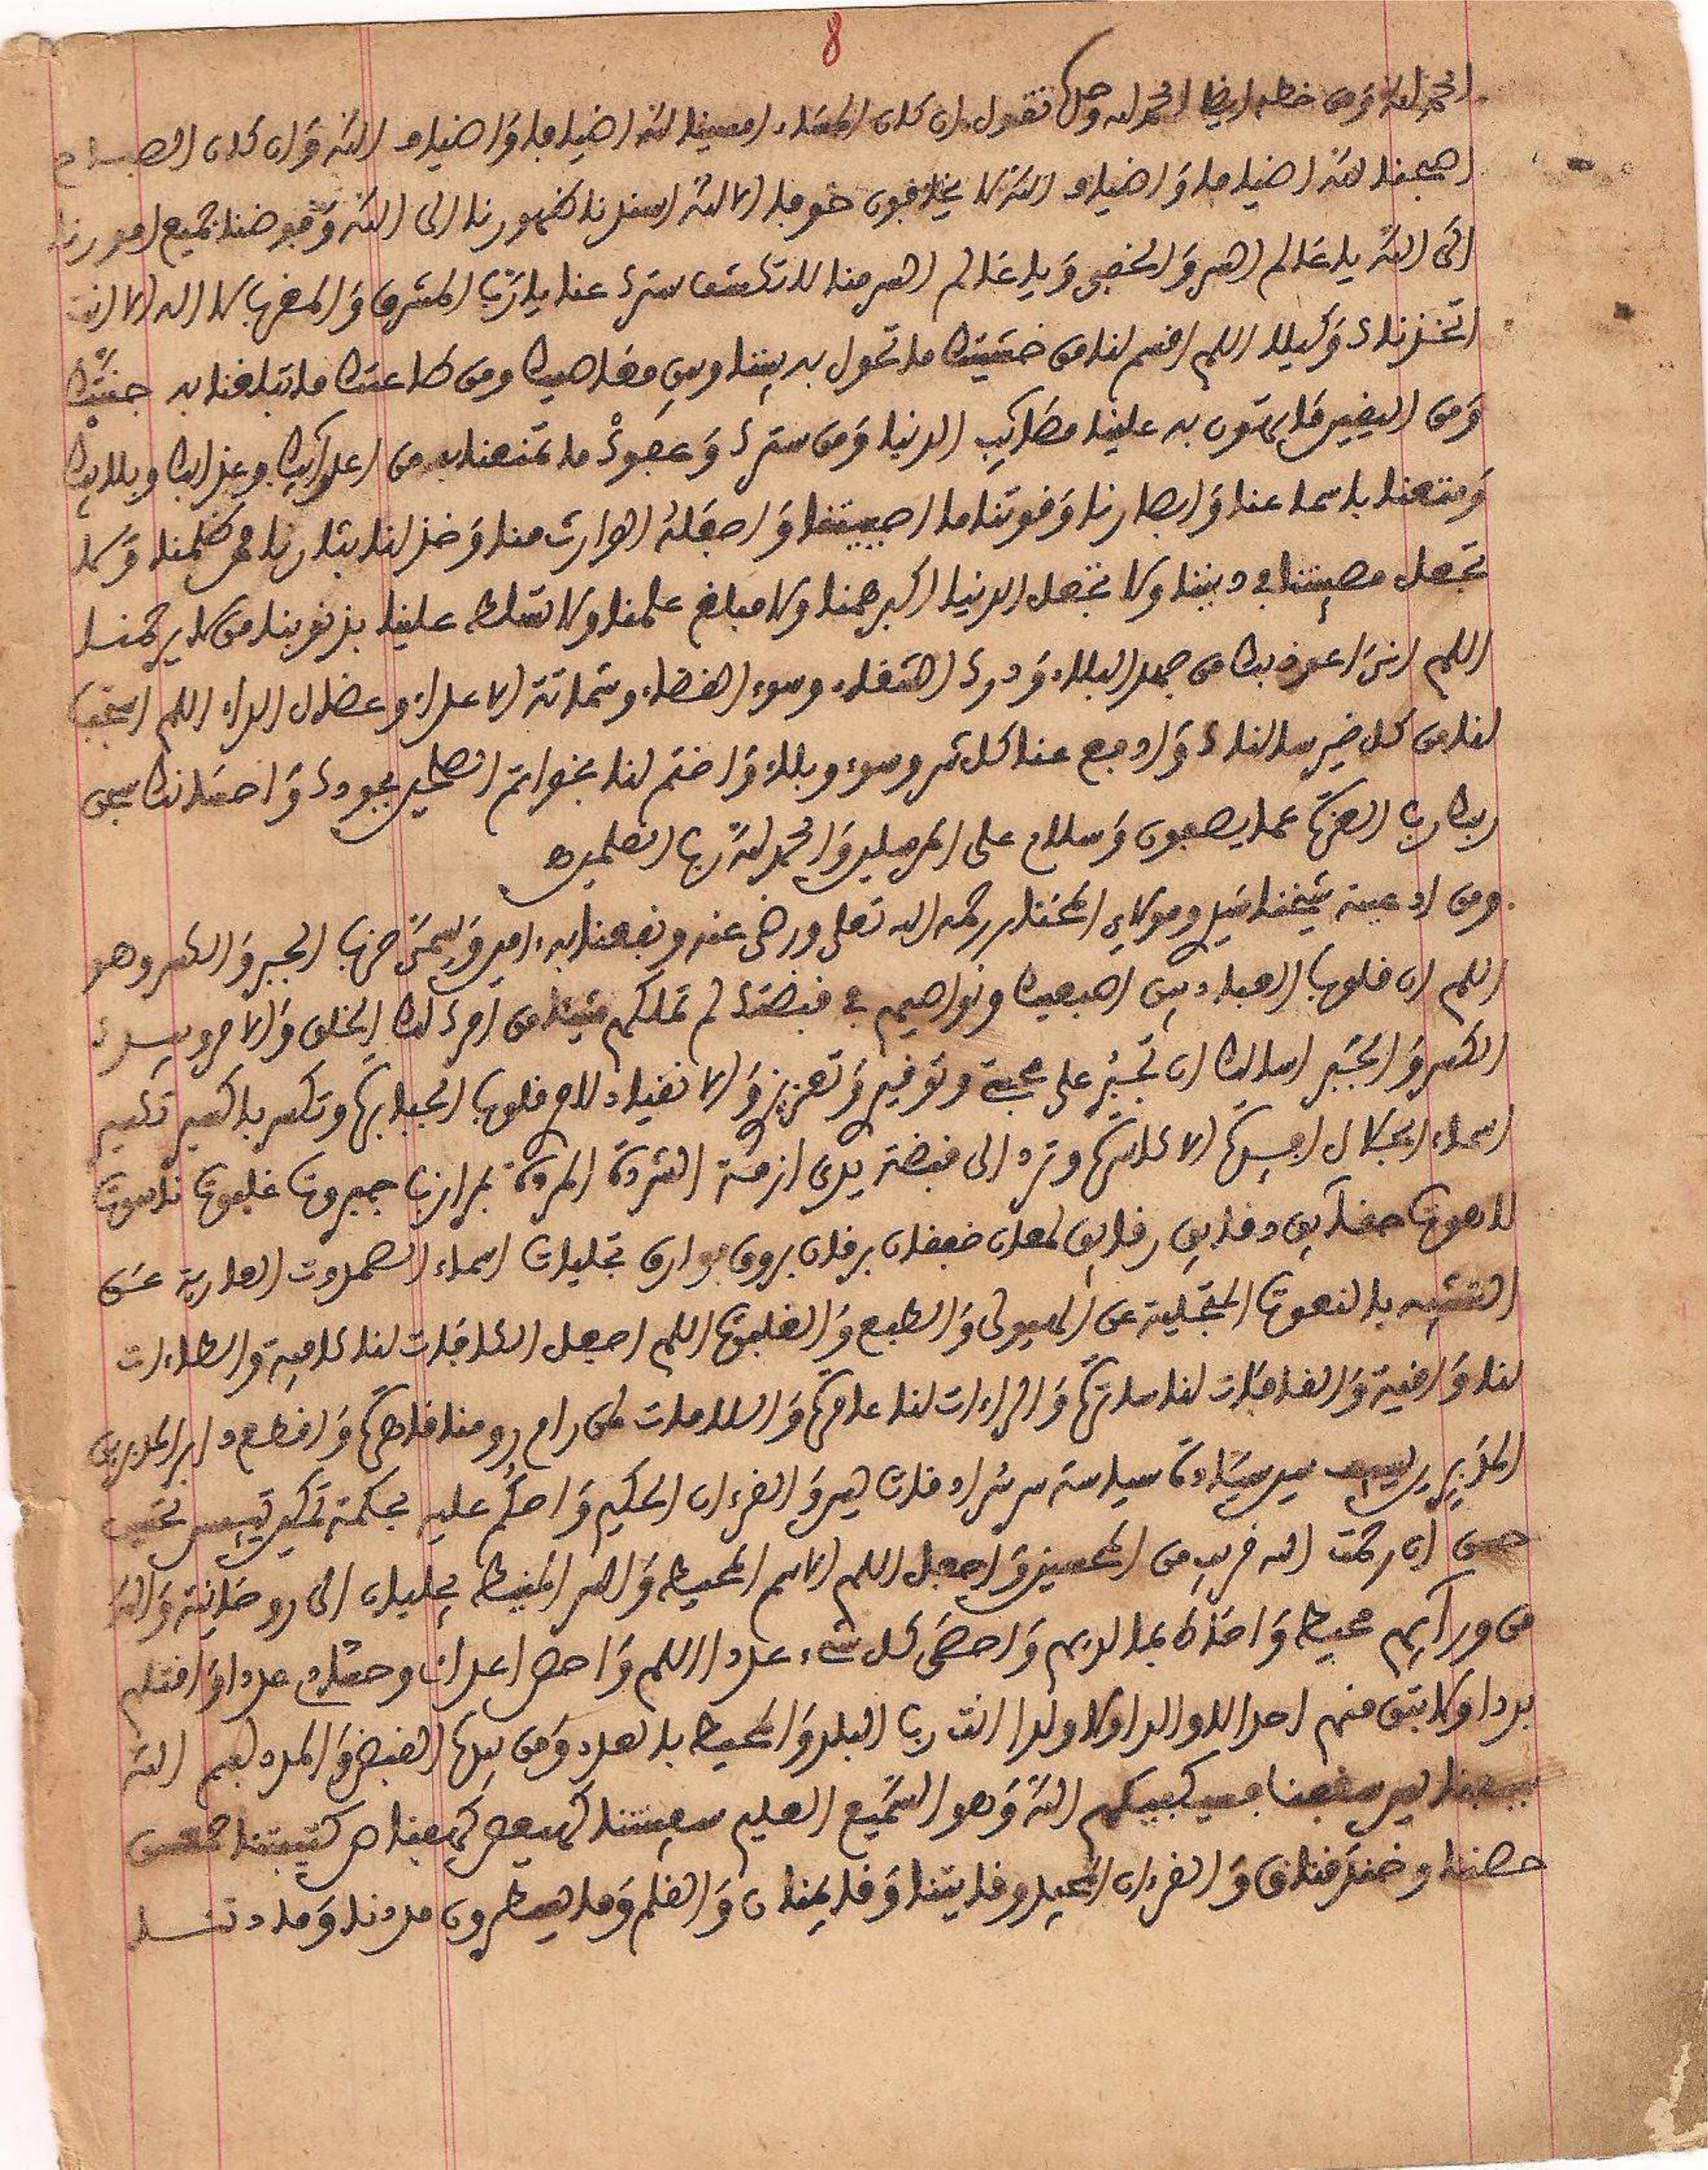 8
الحمد لله ومن خطه ايضا الحمد لله وحده تقول ان كان المساء امسينا لله اضياجا واضياف الله وان كان الصباح
اصبحنا لله اضياجا واضياف الله لا يخافون خوفا الا الله اسندنا ظهورنا الى الله وفوضنا جميع امورنا
الى الله يا عالم السر والخفي ويا عالم السر منا لا تكشف سترك عنا يا رب المشرق والمغرب لا اله الا انت
اتخذناك وكيلا اللهم اقسم لنا من خشيتك ما تحول به بيننا وبين معاصيك ومن طاعتك ما تبلغنا به جنتك
ومن اليقين ما تهون به علينا مصائب الدنيا ومن سترك وعفوك ما تمنعنا به من اعدائك وعذابك وبلائك
ومتعنا باسماعنا وابصارنا وقوتنا ما احييتنا واجعله الوارث منا وخذ لنا بثارنا ممن ظلمنا ولا
تجعل مصيبتنا في ديننا ولا تجعل الدنيا اكبر همنا ولا مبلغ علمنا ولا تسلط علينا بذنوبنا من لا يرحمنا
اللهم اني اعوذ بك من جهد البلاء ودرك الشقاء وسوء القضاء وشماتة الاعداء وعضال الداء اللهم استجب
لنا من كل خير سالناك وادفع عنا كل شر وسوء وبلاء واختم لنا بخواتم الصالحين بجودك واحسانك سبحن
ربك رب العزة عما يصفون وسلام على المرسلين والحمد لله رب العلمين
ومن ادعية شيخنا سيد ومولاي المختار رحمه الله تعلى ورضى عنه ونفعنا به ءامين ويسمى حزب الجبر والكسر وهو
اللهم ان قلوب العباد بين اصبعيك ونواصيهم في قبضتك لم تملكهم شيئا من امرك لك الخلق والامر وبيدك
الكسر والجبر اسالك ان تجبر على محبة وتوفير وتعزيز والانقياد لامر قلوب الجبابرة وتكسر باكسير تكسير
اسماء الجلال افئدة الاكاسرة وترد الى قبضة يدى ازمة الشردة المردة بمرازب جبروت غلبوت ناسوت
لاهوت حقآئق دقائق رقائق لمعان خفقان برقان بروق بوارق تجليات اسماء الصمدوت العارية عن
التشبه بالنعوت المتجلية عن الهيولى والطبع والغلبوت اللهم اجعل الكافات لنا كافية والطاءات
لنا واقية والقافات لنا ساترة والراءات لنا عامرة واللامات لمن رام رومنا قاهرة واقطع دابر المدبرين
المدبرين بسيف سين سيادة سياسة سر سرادقات يس والقرءان الحكيم واحكم عليهم بحكمة تمكين
حسن ان رحمت الله قريب من المحسنين واجعل اللهم الاسم المحيط والسر المنيط بجليان الى روحانية والله
من ورآئهم محيط واحاط بما لديهم واحصى كل شيء عددا اللهم واحص اعدائى وحسادى عددا واقتلهم
بددا ولا تبق منهم احدا لا والدا ولا ولدا انت رب البلد والمحيط بالعدد ومن بيده القبض والمدد بسم الله
فسيكفيكهم الله وهو السميع العليم سفينتنا كهيعص كهفنا حم كتيبتنا حمعسق
حصننا وخندقنا ق والقرءان المجيد وقايتنا وقائمنا ن والقلم وما يسطرون مددنا ومادتنا